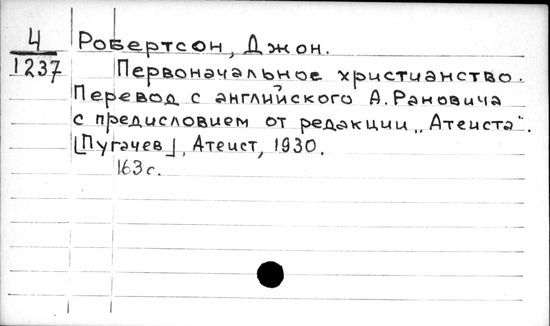 4 Робертсон, Джон.
1237 Первоначальное христианство.
Перевод с английского А. Рановича
с предисловием от редакции „Атеиста".
[Пугачев], Атеист, 1930.
163 с.